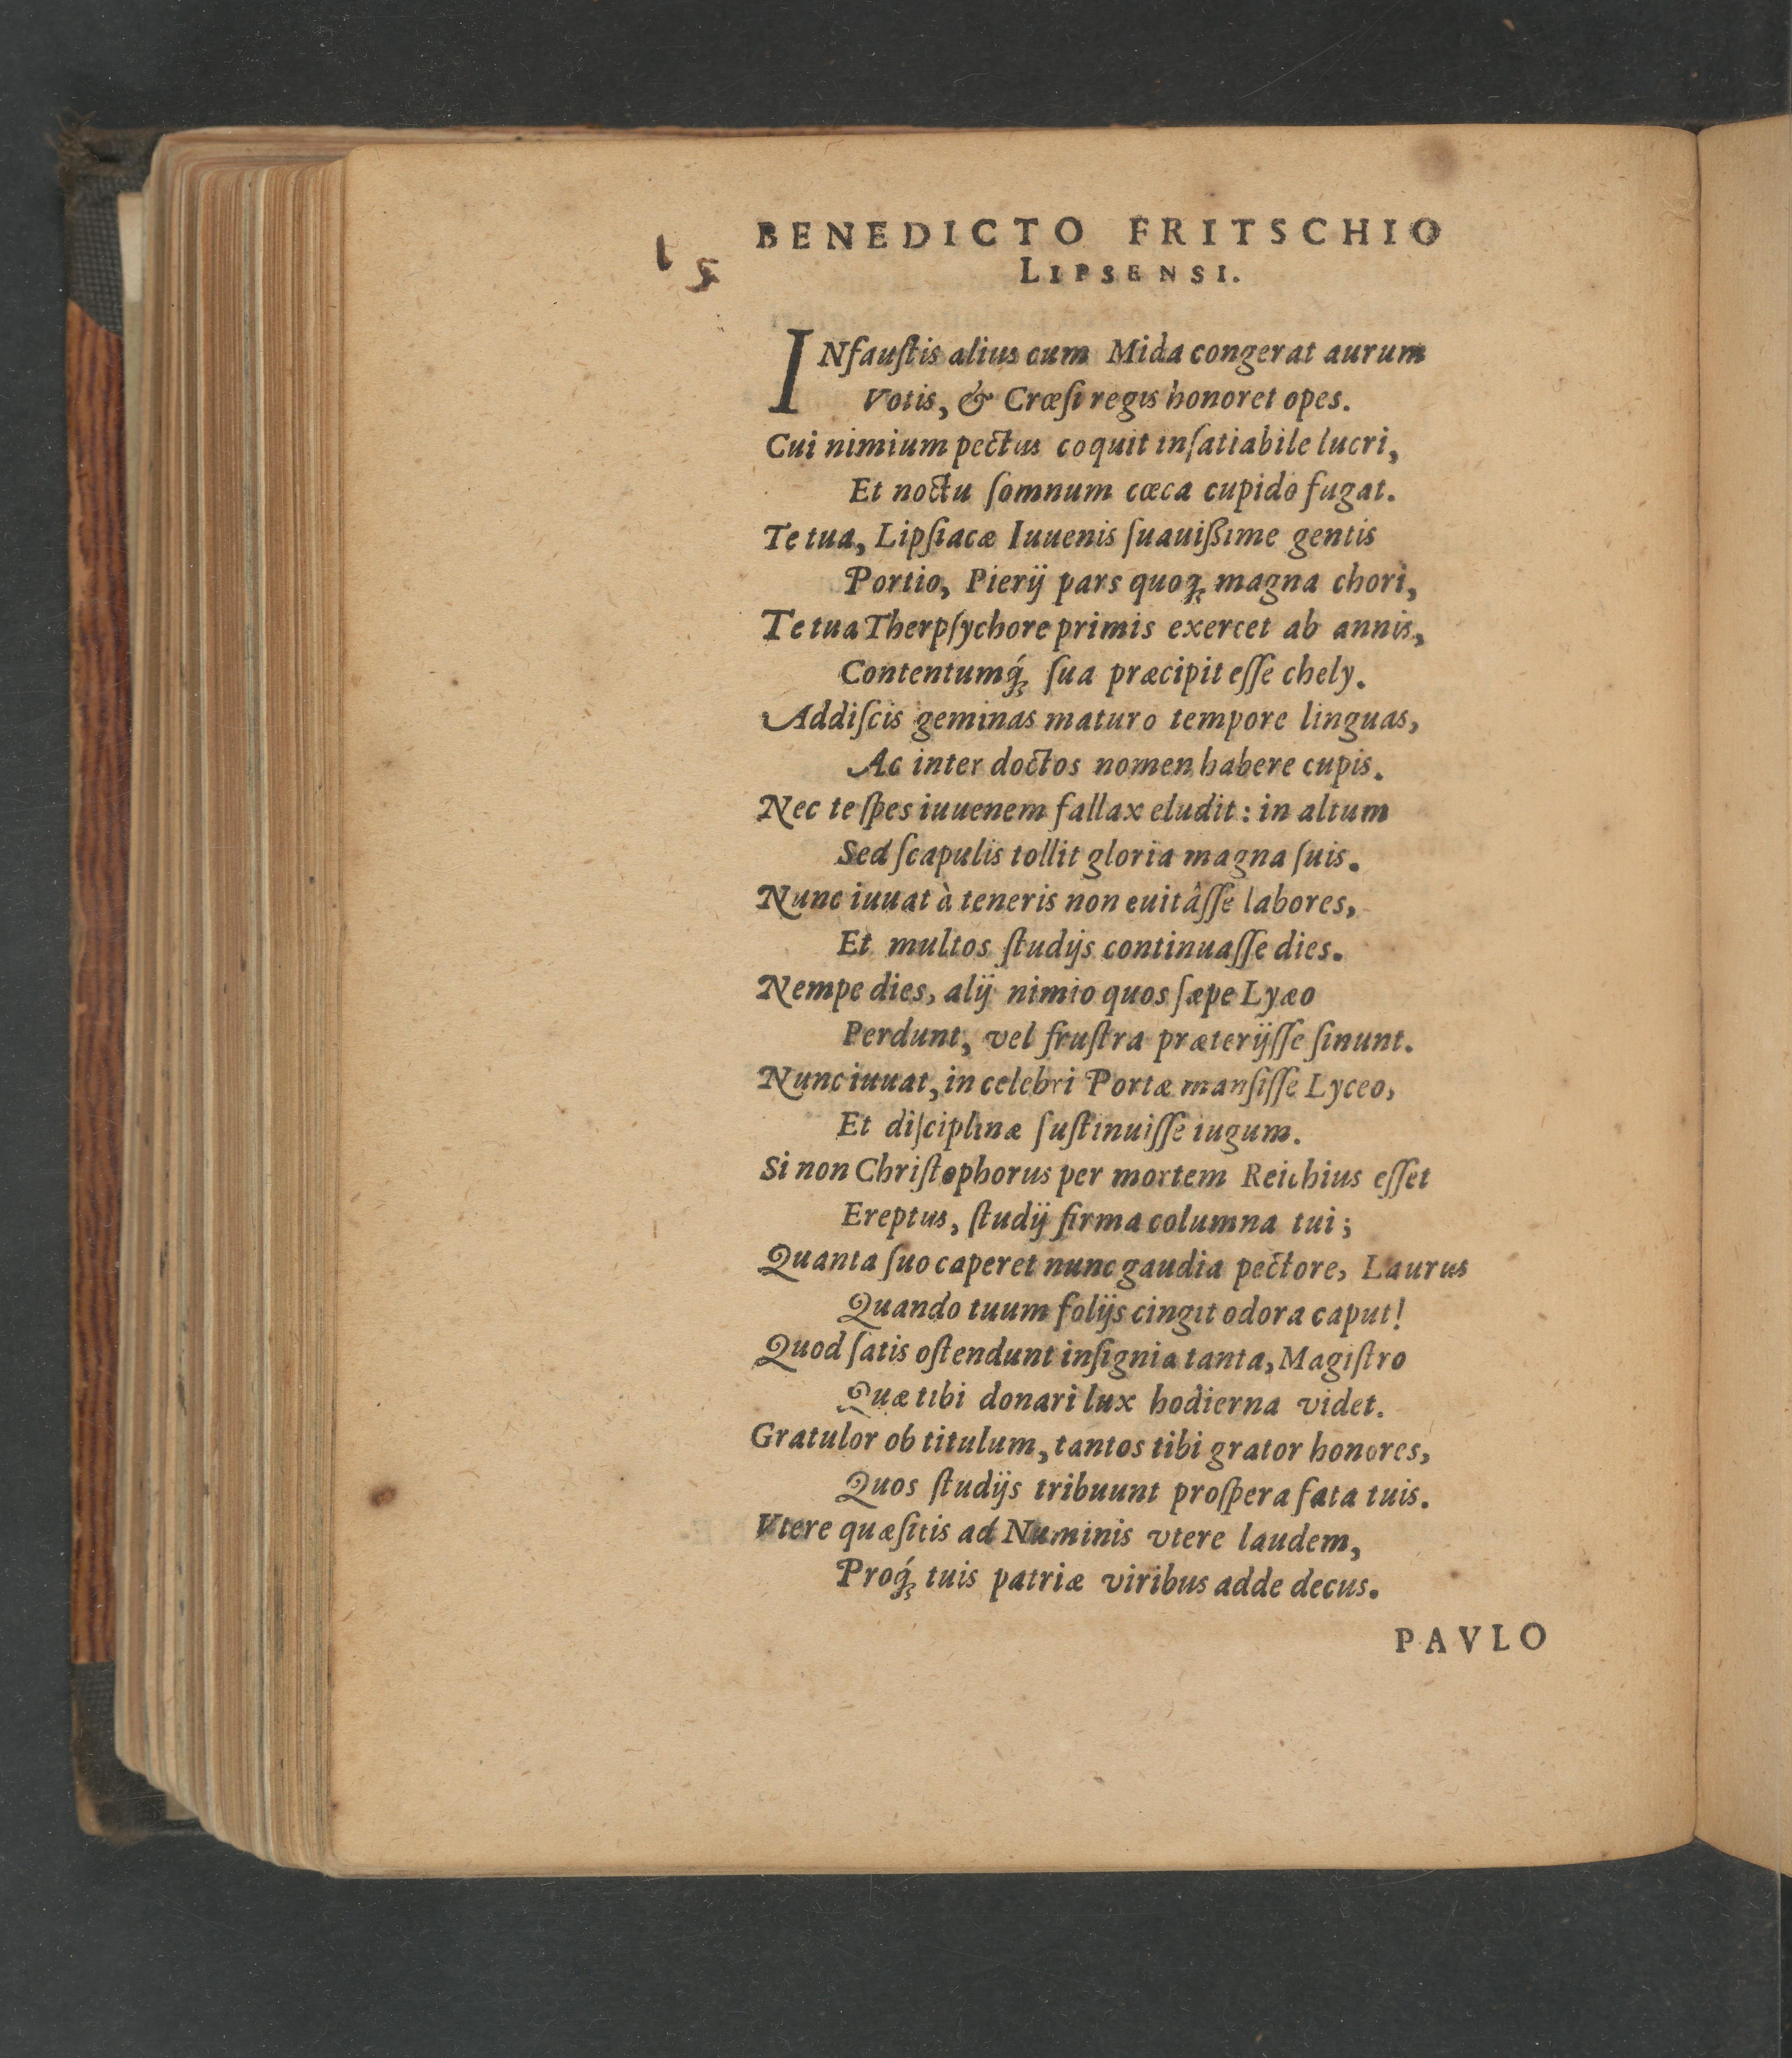 BENEDICTO FRITSCHIO
LIPSENSI.
INfauſtis alius cum Mida congerat aurum
Votis, & Crœſi regis honoret opes.
Cui nimium pectus coquit inſatiabile lucri,
Et noctu ſomnum cœca cupido fugat.
Te tua, Lipſiacæ Iuuenis ſuauiſsime gentis
Portio, Pierij pars quoq́; magna chori,
Te tua Therpſychore primis exercet ab annis,
Contentumq́; ſua præcipit eſſe chely.
Addiſcis geminas maturo tempore linguas,
Ac inter doctos nomen habere cupis.
Nec te ſpes iuuenem fallax eludit: in altum
Sed ſcapulis tollit gloria magna ſuis.
Nunc iuuat à teneris non euitâſſe labores,
Et multos ſtudijs continuaſſe dies.
Nempe dies, alij nimio quos ſæpe Lyæo
Perdunt, vel fruſtra præterijſſe ſinunt.
Nunc iuuat, in celebri Portæ manſiſſe Lyceo,
Et diſciplinæ ſuſtinuiſſe iugum.
Si non Chriſtophorus per mortem Reichius eſſet
Ereptus, ſtudij firma columna tui;
Quanta ſuo caperet nunc gaudia pectore, Laurus
Quando tuum folijs cingit odora caput!
Quod ſatis oſtendunt inſignia tanta, Magiſtro
Quæ tibi donari lux hodierna videt.
Gratulor ob titulum, tantos tibi grator honores,
Quos ſtudijs tribuunt proſpera fata tuis.
Vtere quæſitis ad Numinis vtere laudem,
Proq́; tuis patriæ viribus adde decus.
PAVLO